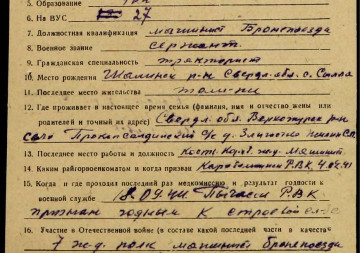 5. Образование
6. На ВУС 27
7. Должностная квалификация машинист Бронепоезда
8. Военное звание сержант.
9. Гражданская специальность тракторист
10. Место рождения р-н Свердл. обл. с.
11. Последнее место жительства там-же
12. Где проживает в настоящее время семья (фамилия, имя и отчество жены или
родителей и точный их адрес) Свердл. обл. Верхотурск. р-н
село
13. Последнее место работы и должность жд. Машинист
14. Каким райгорвоенкоматом и когда призван РВК 4.09.41
15. Когда и где проходил последний раз медкомиссию и результат годности к
военной службе 18.04.44 РВК
признан годным к строевой
16. Участие в Отечественной войне (в составе какой последней части и в качестве
7 ж.д. полк машинист бронепоезда